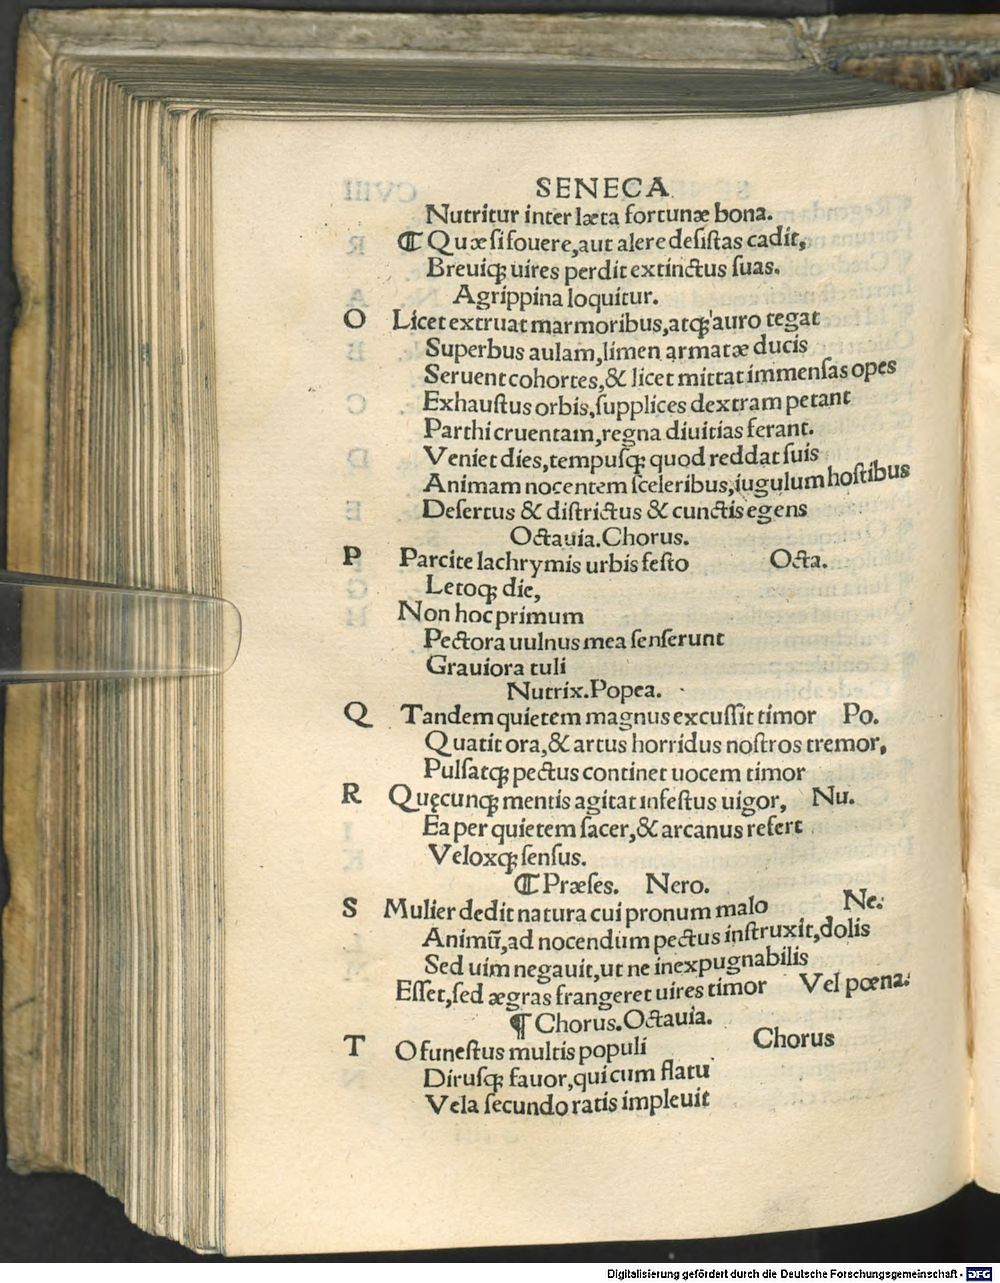 SENECA
Nutritur inter læta fortunæ bona.
¶ Quæ si fouere, aut alere desistas cadit,
Breuiqꝫ uires perdit extinctus suas.
Agrippina loquitur.
O Licet extruat marmoribus, atqꝫ auro tegat
Superbus aulam, limen armatæ ducis
Seruent cohortes, & licet mittat immensas opes
Exhaustus orbis, supplices dextram petant
Parthi cruentam, regna diuitias ferant.
Veniet dies, tempusqꝫ quod reddat suis
Animam nocentem sceleribus, iugulum hostibus
Desertus & districtus & cunctis egens
Octauia. Chorus.
P Parcite lachrymis urbis festo Octa.
Letoqꝫ die,
Non hoc primum
Pectora uulnus mea senserunt
Grauiora tuli
Nutrix. Popea.
Q Tandem quietem magnus excussit timor Po.
Quatit ora, & artus horridus nostros tremor,
Pulsatqꝫ pectus continet uocem timor
R Quęcunqꝫ mentis agitat infestus uigor, Nu.
Ea per quietem sacer, & arcanus refert
Veloxqꝫ sensus.
¶ Præses. Nero.
S Mulier dedit natura cui pronum malo Ne.
Animū, ad nocendum pectus instruxit, dolis
Sed uim negauit, ut ne inexpugnabilis
Esset, sed ægras frangeret uires timor Vel pœna.
¶ Chorus. Octauia.
T O funestus multis populi Chorus
Dirusqꝫ fauor, qui cum flatu
Vela secundo ratis impleuit
Digitalisierung gefördert durch die Deutsche Forschungsgemeinschaft - DFG